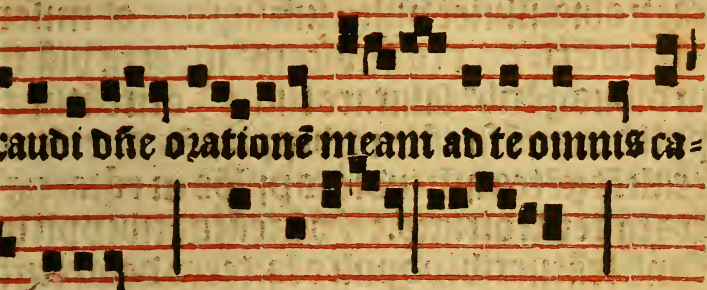 caudi dñe orationē meam ad te omnis ca=